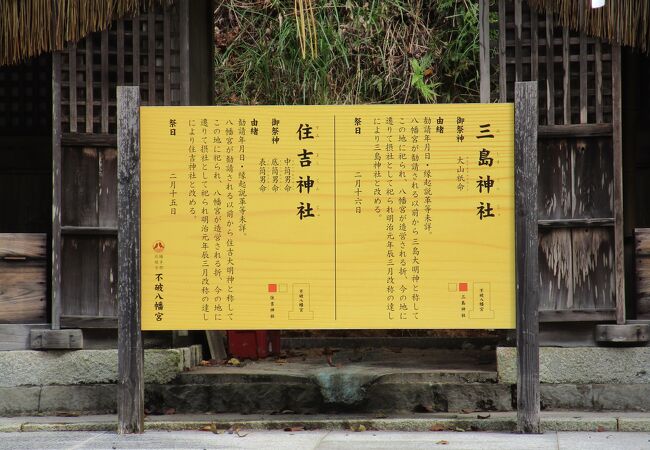 三島神社
御祭神
大山祇命
由緒
勧請年月日・縁起説革等未詳。
八幡宮が勧請される以前から三島大明神と称して
この地に祀られ、八幡宮が造営される折、今の地に
遷りて摂社として祀られ明治元年辰三月改称の達し
により三島神社と改める。
祭日
二月十六日
三島神社
不破八幡宮
住吉神社
御祭神
中筒男命
底筒男命
表筒男命
由緒
勧請年月日・縁起説革等未詳。
八幡宮が勧請される以前から住吉大明神と称して
この地に祀られ、八幡宮が造営される折、今の地に
遷りて摂社として祀られ明治元年辰三月改称の達し
により住吉神社と改める。
祭日
二月十五日
住吉神社
不破八幡宮
不破八幡宮